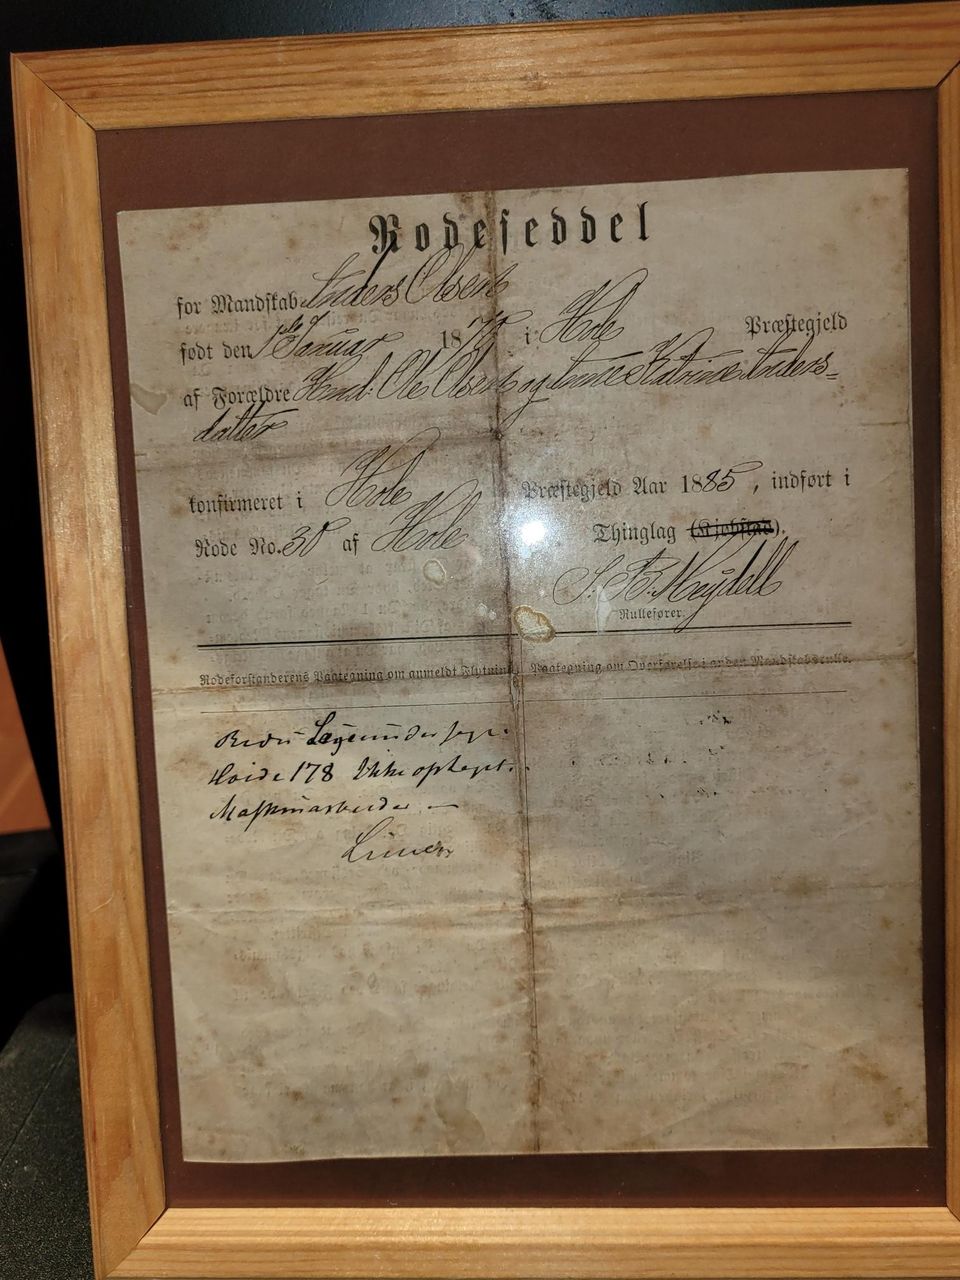 Rodeseddel
for Mandskab Anders Olsen
født den 1ste Januar 187 i Hole Præstegjeld
af Forældre Hmd. Ole Olsen og Anne Katrine Anders=
datter
konfirmeret i Hole Præstegjeld Aar 1885, indført i
Rode No. 30 af Hole Thinglag (Kjøbstad).
S. Meydell
Rullefører.
Rodeforstanderens Paategning om anmeldt Flytning
Paategning om Overførelse i anden Mandskabsrulle.
Lægeundersøgt
Høide 178 Ikke optaget.
Maskinarbeider